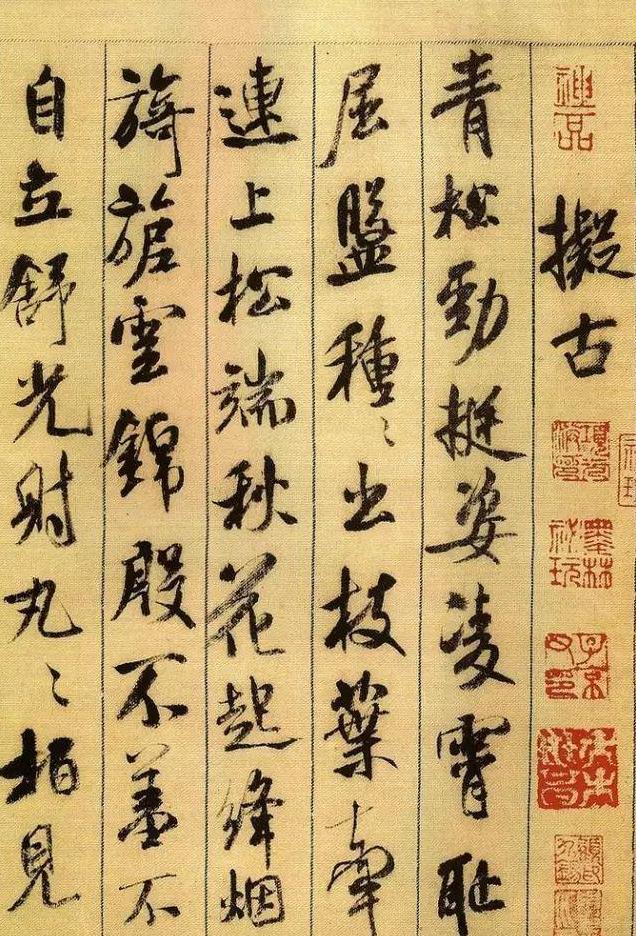 神品
擬古
墨林秘玩
青松勁挺姿凌霄恥
屈盤種〻出枝葉牽
連上松端秋花起絳烟
旖旎雲錦殷不羞不
自立舒光射丸〻柏見